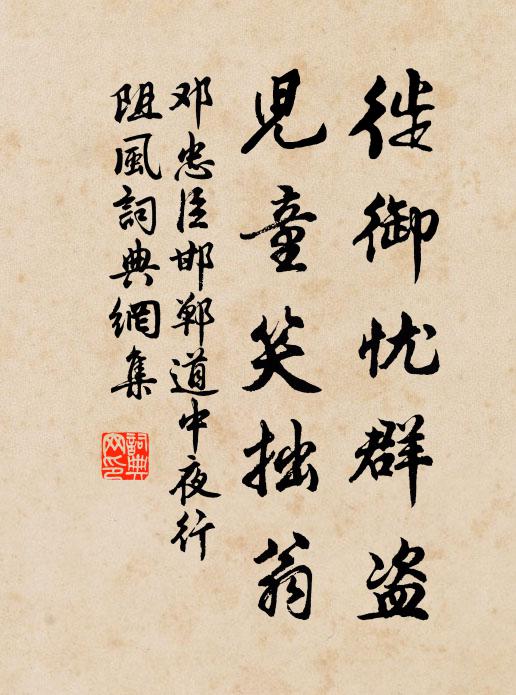 徒御忧群盗
儿童笑拙翁
邓忠臣邯郸道中夜行
阻风词典網集
詞典
网印